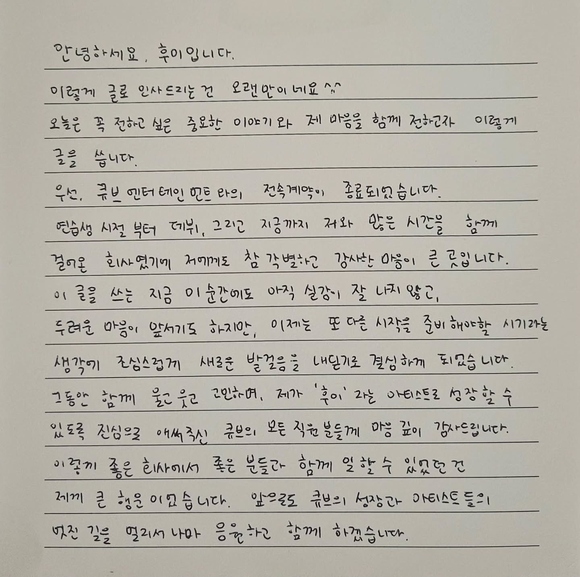 안녕하세요, 후이입니다.
이렇게 글로 인사드리는건 오랜만이네요^^
오늘은 꼭 전하고 싶은 중요한 이야기와 제 마음을 함께 전하고자 이렇게
글을 씁니다.
우선, 큐브 엔터테인먼트와의 전속계약이 종료되었습니다.
연습생 시절부터 데뷔, 그리고 지금까지 저와 많은 시간을 함께
걸어온 회사였기에 저에게도 참 각별하고 감사한 마음이 큰 곳입니다.
이 글을 쓰는 지금 이 순간에도 아직 실감이 잘 나지 않고,
두려운 마음이 앞서기도 하지만, 이제는 또 다른 시작을 준비해야할 시기라는
생각에 조심스럽게 새로운 발걸음을 내딛기로 결심하게 되었습니다.
그동안 함께 울고 웃고 고민하며, 제가 '후이'라는 아티스트로 성장할 수
있도록 진심으로 애써주신 큐브의 모든 직원분들께 마음 깊이 감사드립니다.
이렇게 좋은 회사에서 좋은 분들과 함께 일할 수 있었던 건
제게 큰 행운이었습니다. 앞으로도 큐브의 성장과 아티스트들의
멋진 길을 멀리서나마 응원하고 함께 하겠습니다.